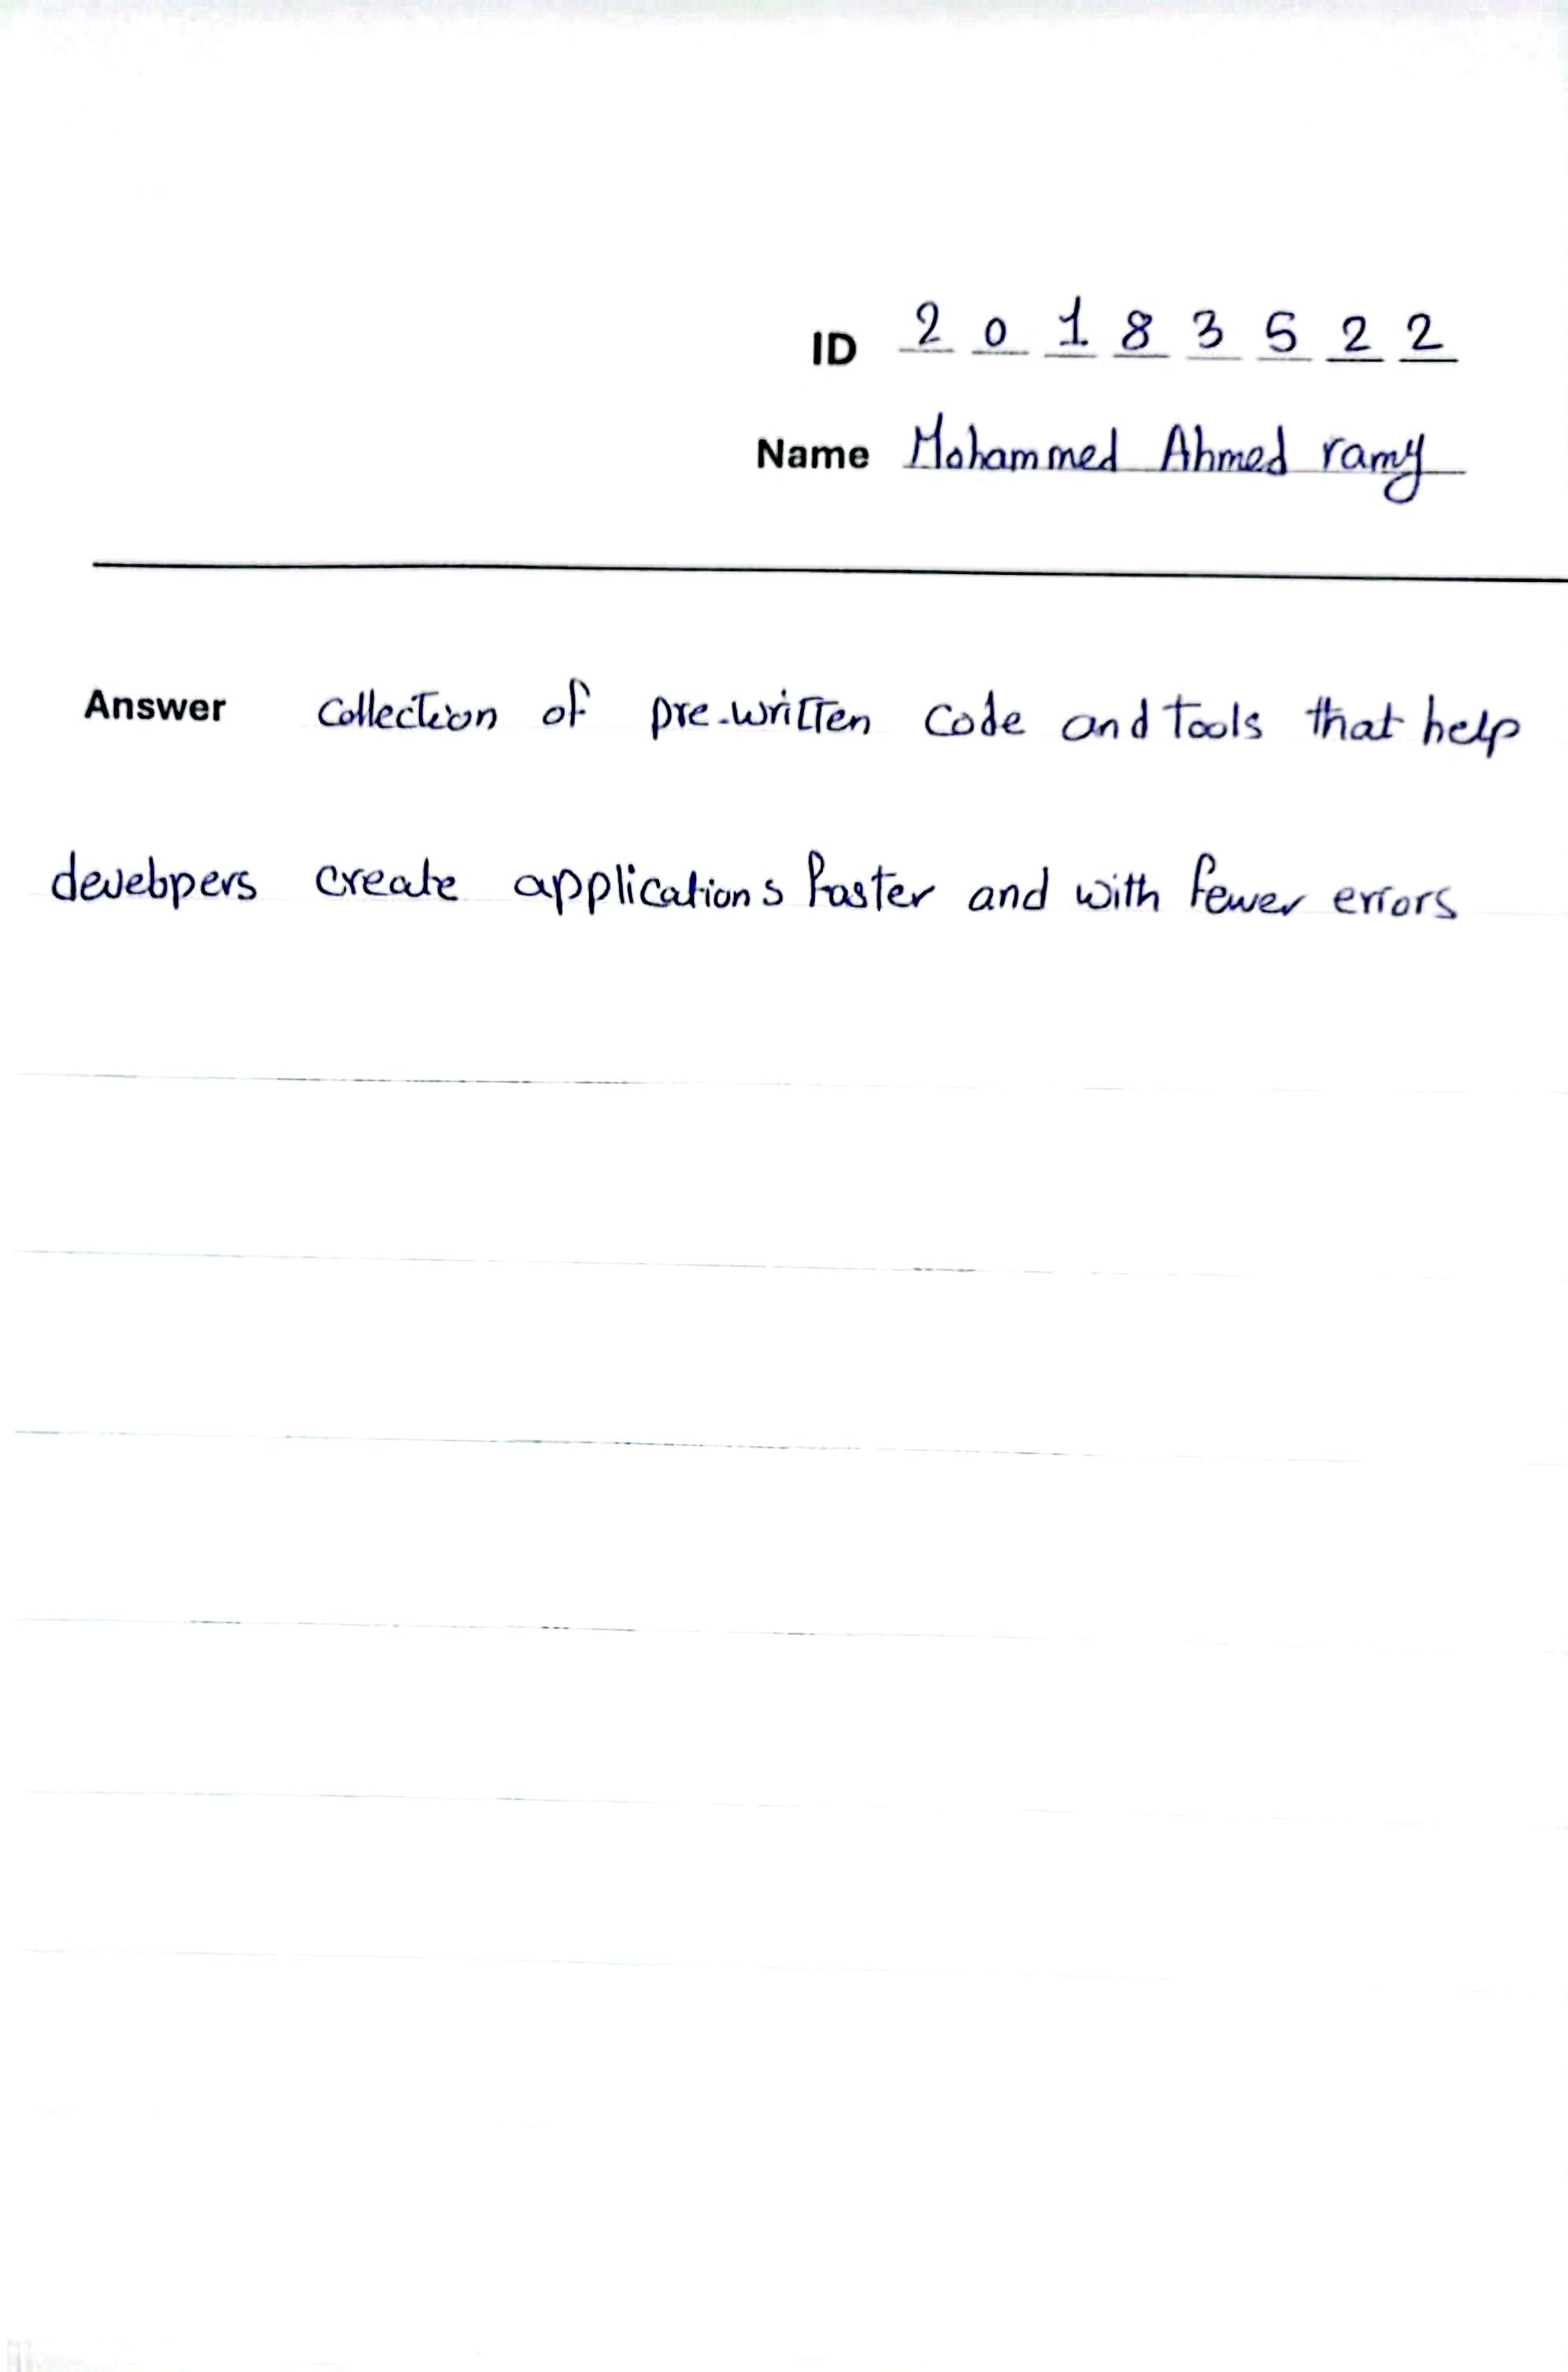 ID 2 0 1 8 3 5 2 2
Name Mohammed Ahmed ramy
Answer collection of pre-written code and tools that help
developers create applications faster and with fewer errors